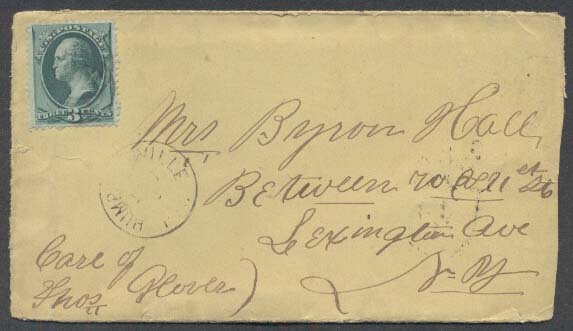 U.S. POSTAGE
THREE 3 CENTS
VILLE
HUMP
Mrs Byron Hall,
Between 70 & 71 st
Lexington Ave
N. Y
Care of
Thos Glover)